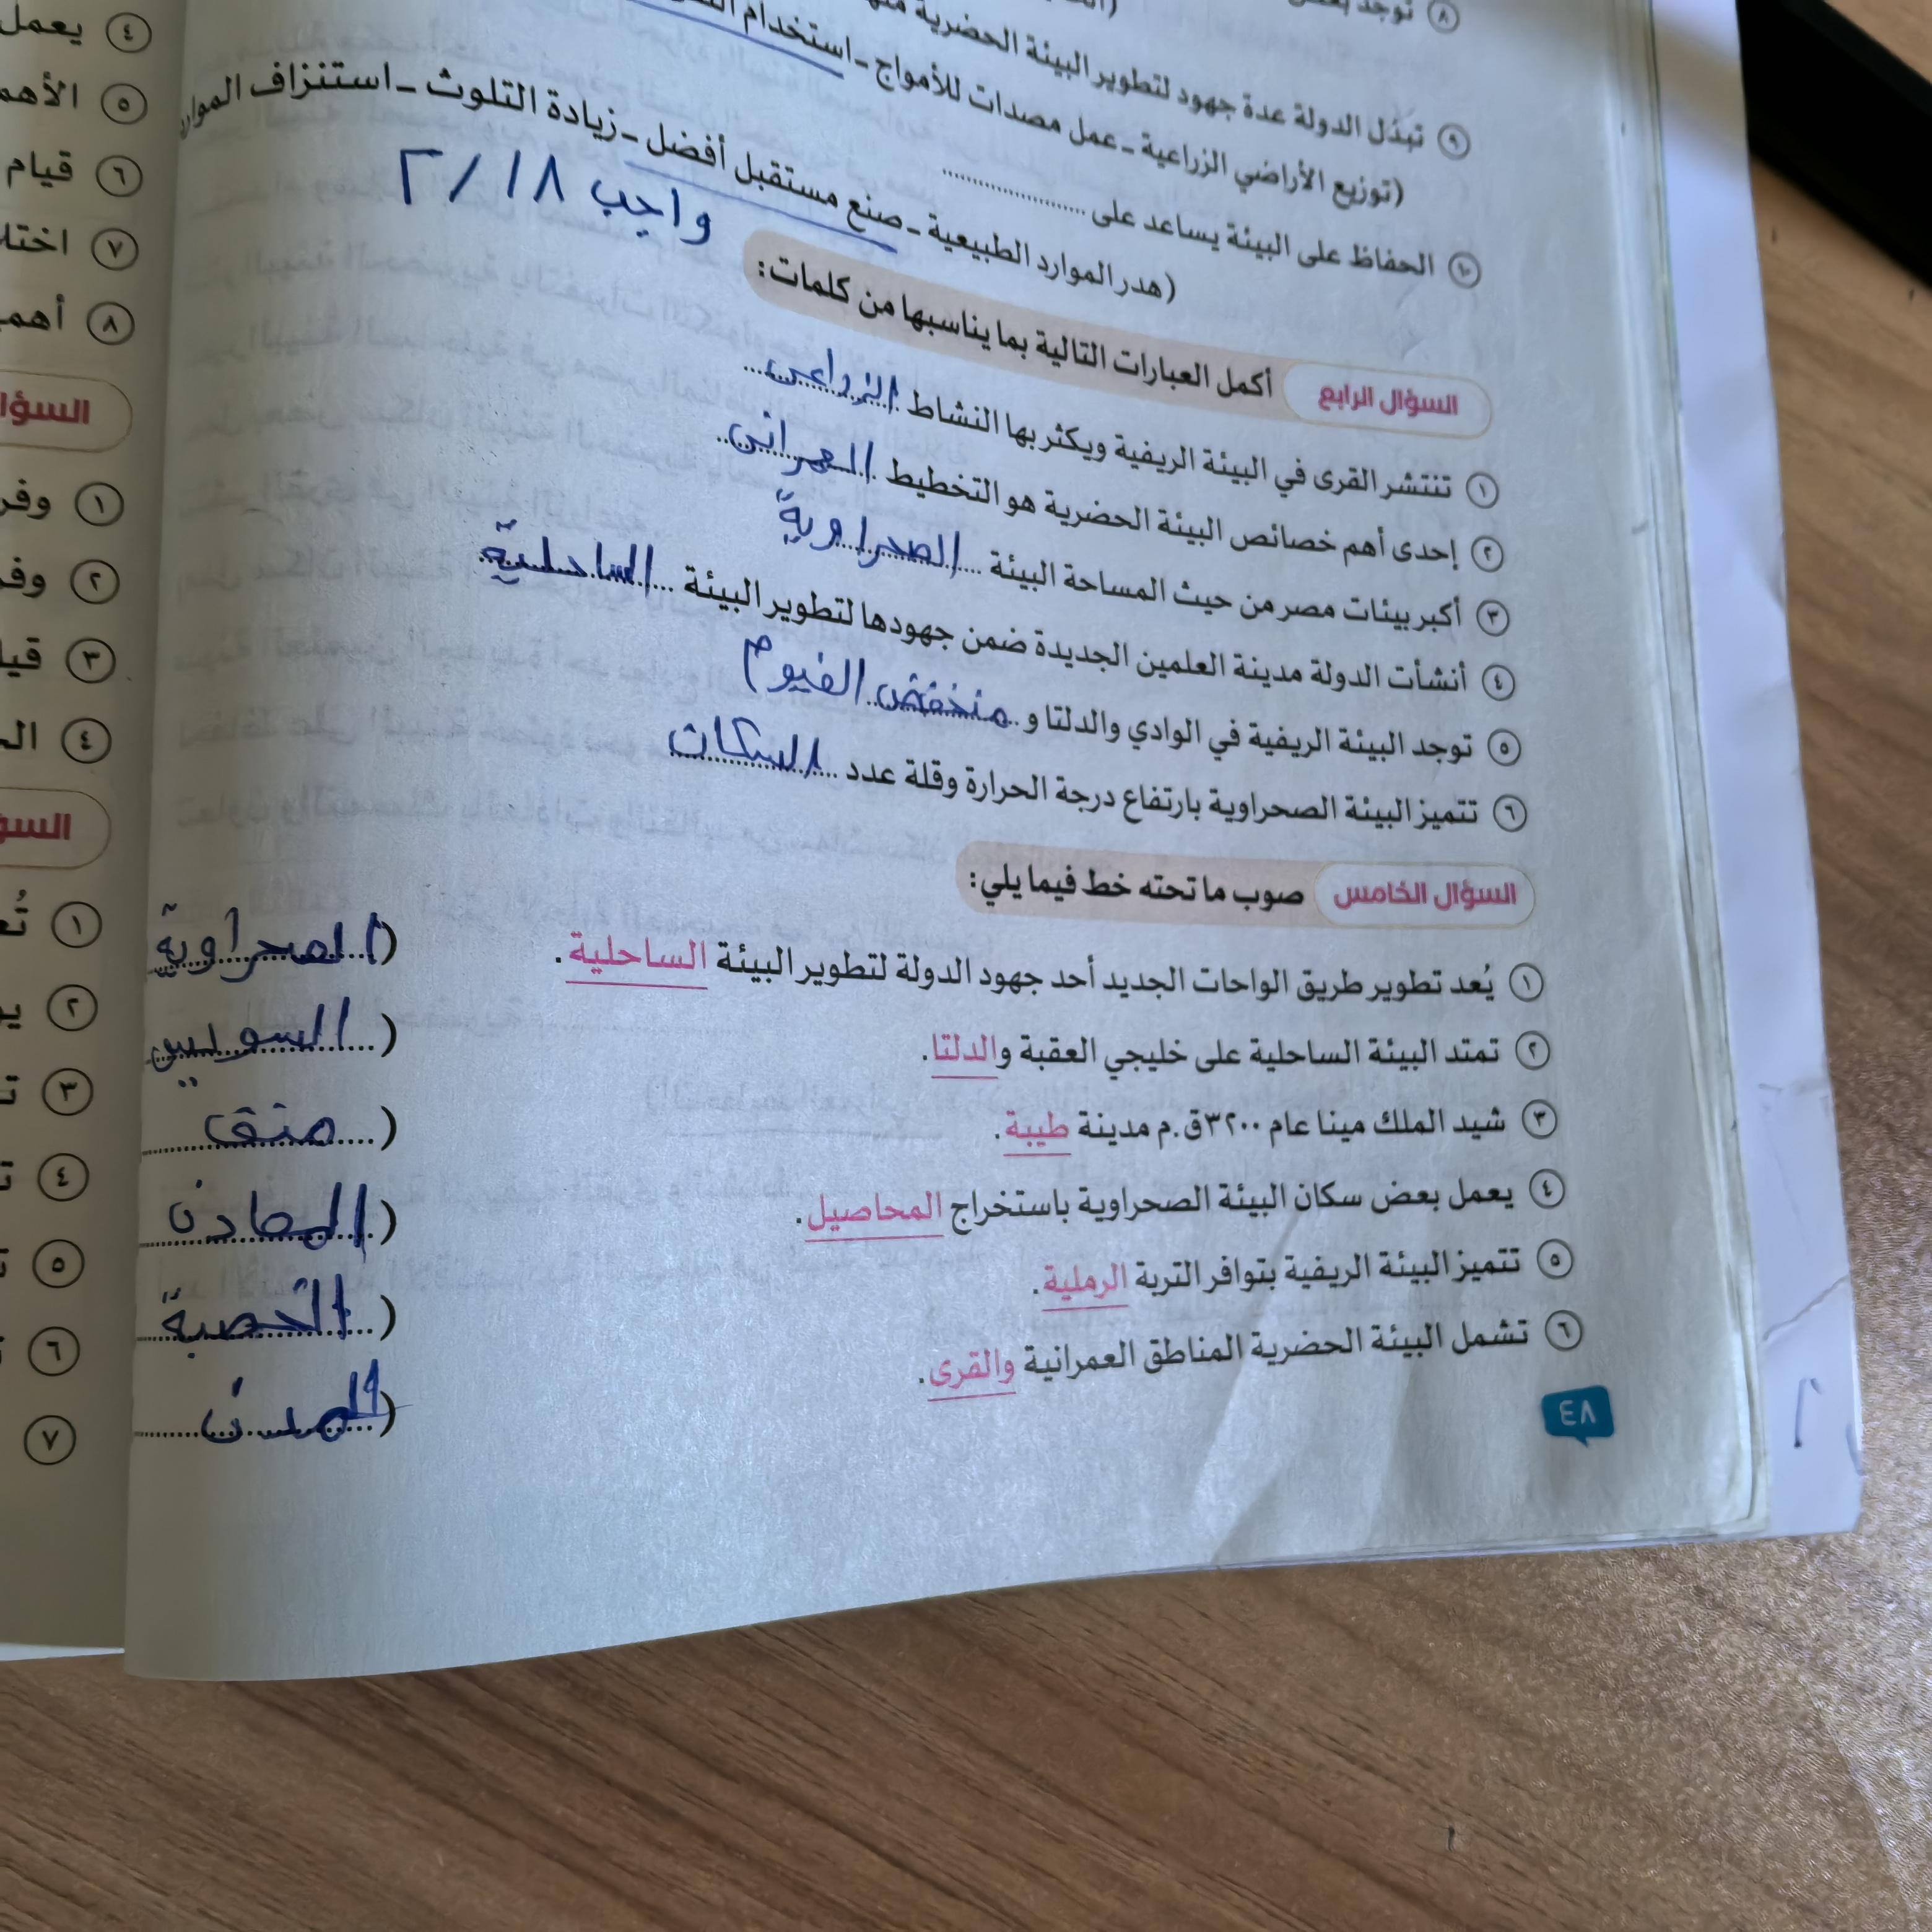 ٨ توجد
٩ تبذل الدولة عدة جهود لتطوير البيئة الحضرية منها
(توزيع الأراضي الزراعية - عمل مصدات للأمواج - استخدام
١٠ الحفاظ على البيئة يساعد على ............
(هدر الموارد الطبيعية - صنع مستقبل أفضل - زيادة التلوث - استنزاف الموارد
واجب ١٨/٢
السؤال الرابع أكمل العبارات التالية بما يناسبها من كلمات:
١ تنتشر القرى في البيئة الريفية ويكثر بها النشاط الزراعى
٢ إحدى أهم خصائص البيئة الحضرية هو التخطيط العمرانى
٣ أكبر بيئات مصر من حيث المساحة البيئة الصحراوية
٤ أنشأت الدولة مدينة العلمين الجديدة ضمن جهودها لتطوير البيئة الساحلية
٥ توجد البيئة الريفية في الوادي والدلتا و منخفض الفيوم
٦ تتميز البيئة الصحراوية بارتفاع درجة الحرارة وقلة عدد السكان
السؤال الخامس صوب ما تحته خط فيما يلي:
١ يُعد تطوير طريق الواحات الجديد أحد جهود الدولة لتطوير البيئة الساحلية. (الصحراوية
٢ تمتد البيئة الساحلية على خليجي العقبة والدلتا. (السويس
٣ شيد الملك مينا عام ٣٢٠٠ق.م مدينة طيبة. (منف
٤ يعمل بعض سكان البيئة الصحراوية باستخراج المحاصيل. (المعادن
٥ تتميز البيئة الريفية بتوافر التربة الرملية. (الخصبة
٦ تشمل البيئة الحضرية المناطق العمرانية والقرى. (المدن
٤٨
٤ يعمل
٥ الأهم
٦ قيام
٧
٨
١
٢
٣
٤
١
٢
٣
٤
٥
٦
٧